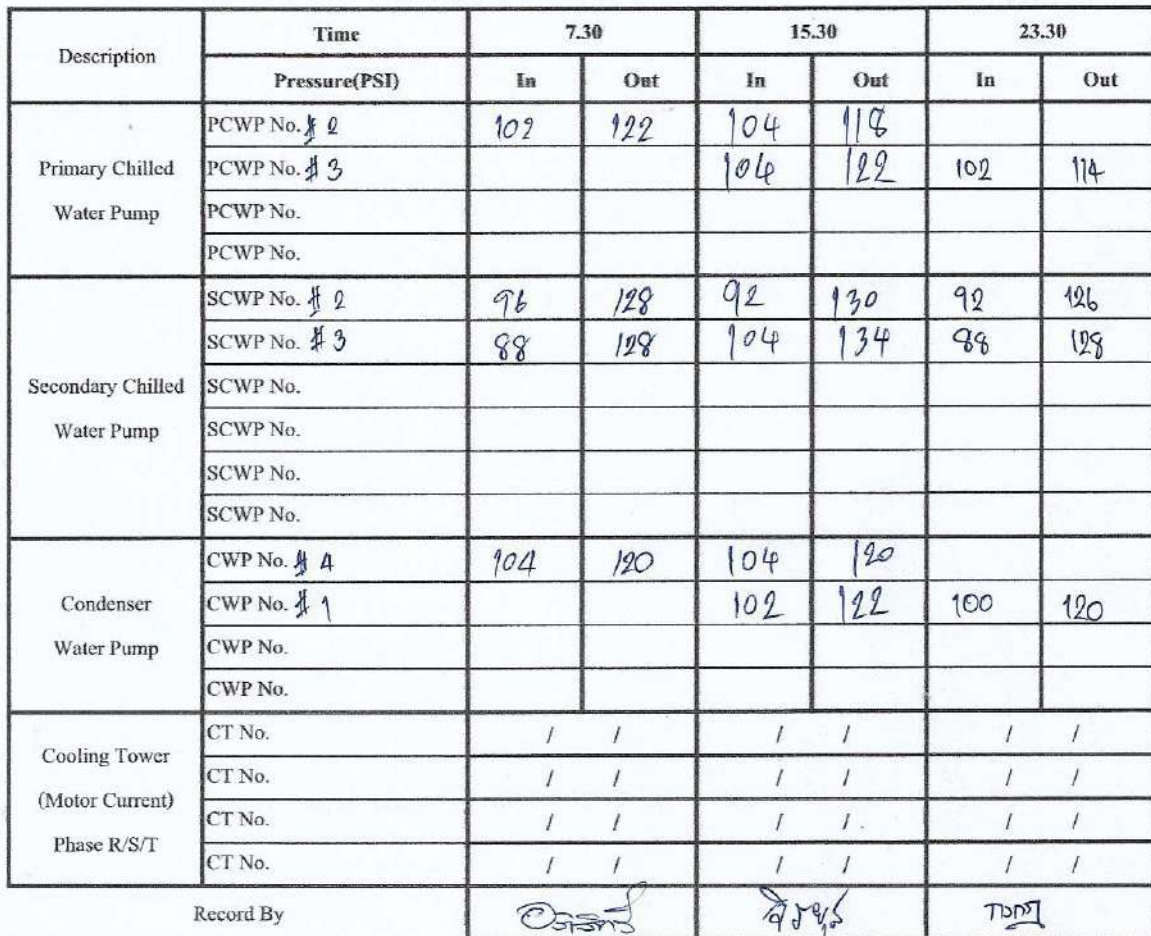 Description Time 7.30 15.30 23.30
Pressure(PSI) In Out In Out In Out
Primary Chilled Water Pump
PCWP No. # 2 102 122 104 118
PCWP No. # 3 104 122 102 114
PCWP No.
PCWP No.
Secondary Chilled Water Pump
SCWP No. # 2 96 128 92 130 92 126
SCWP No. # 3 88 128 104 134 88 128
SCWP No.
SCWP No.
SCWP No.
SCWP No.
Condenser Water Pump
CWP No. # 4 104 120 104 120
CWP No. # 1 102 122 100 120
CWP No.
CWP No.
Cooling Tower (Motor Current) Phase R/S/T
CT No. / / / / / /
CT No. / / / / / /
CT No. / / / / / /
CT No. / / / / / /
Record By